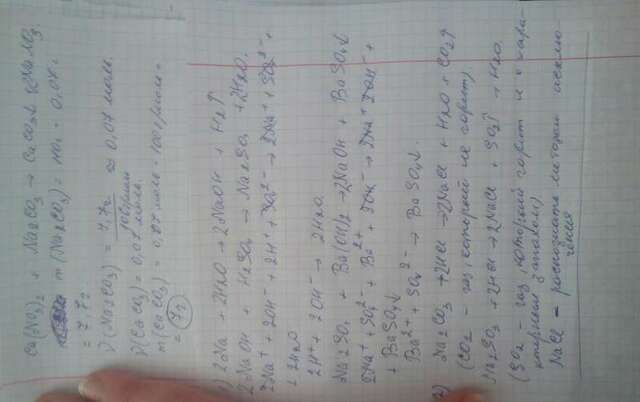 Ca(NO3)2 + Na2CO3 → CaCO3↓ + 2NaNO3
m(Na2CO3) = 110г · 0,07 =
= 7,7г
ν(Na2CO3) = 7,7г / 106г/моль ≈ 0,07 моль.
ν(CaCO3) = 0,07 моль.
m(CaCO3) = 0,07 моль · 100г/моль =
= 7г
1) 2Na + 2H2O → 2NaOH + H2↑
2NaOH + H2SO4 → Na2SO4 + 2H2O.
2Na+ + 2OH- + 2H+ + SO4 2- → 2Na+ + SO4 2- +
+ 2H2O
2H+ + 2OH- → 2H2O
Na2SO4 + Ba(OH)2 → 2NaOH + BaSO4↓
2Na+ + SO4 2- + Ba2+ + 2OH- → 2Na+ 2OH- +
+ BaSO4↓
Ba2+ + SO4 2- → BaSO4↓.
2) Na2CO3 + 2HCl → 2NaCl + H2O + CO2↑
(CO2 - газ, который не горит)
Na2SO3 + 2HCl → 2NaCl + SO2↑ + H2O
(SO2 - газ, который горит и с хара-
ктерным запахом)
NaCl - распознаете методом исклю-
чения